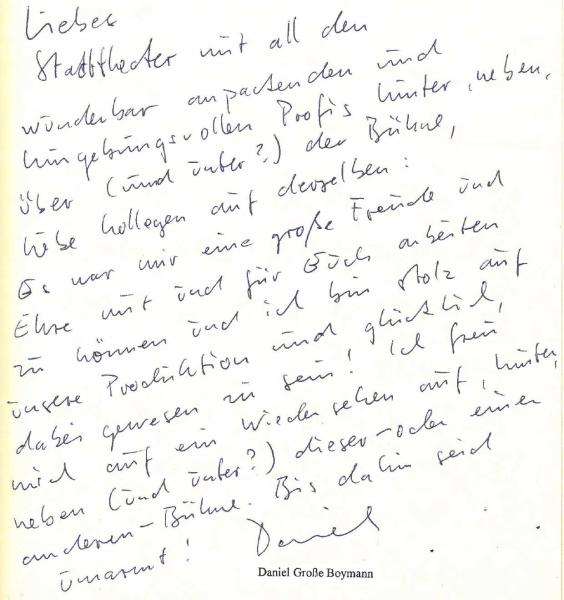 Liebes
Stadttheater mit all den
wunderbar anpackenden und
hingebungsvollen Profis hinter, neben,
über (und unter?) der Bühne,
liebe Kollegen auf derselben:
Es war mir eine große Freude und
Ehre mit und für Euch arbeiten
zu können und ich bin stolz auf
unsere Produktion und glücklich,
dabei gewesen zu sein! Ich freu
mich auf ein Wiedersehen auf, hinter,
neben (und unter?) dieser-oder einer
anderen-Bühne. Bis dahin seid
umarmt! Daniel
Daniel Große Boymann